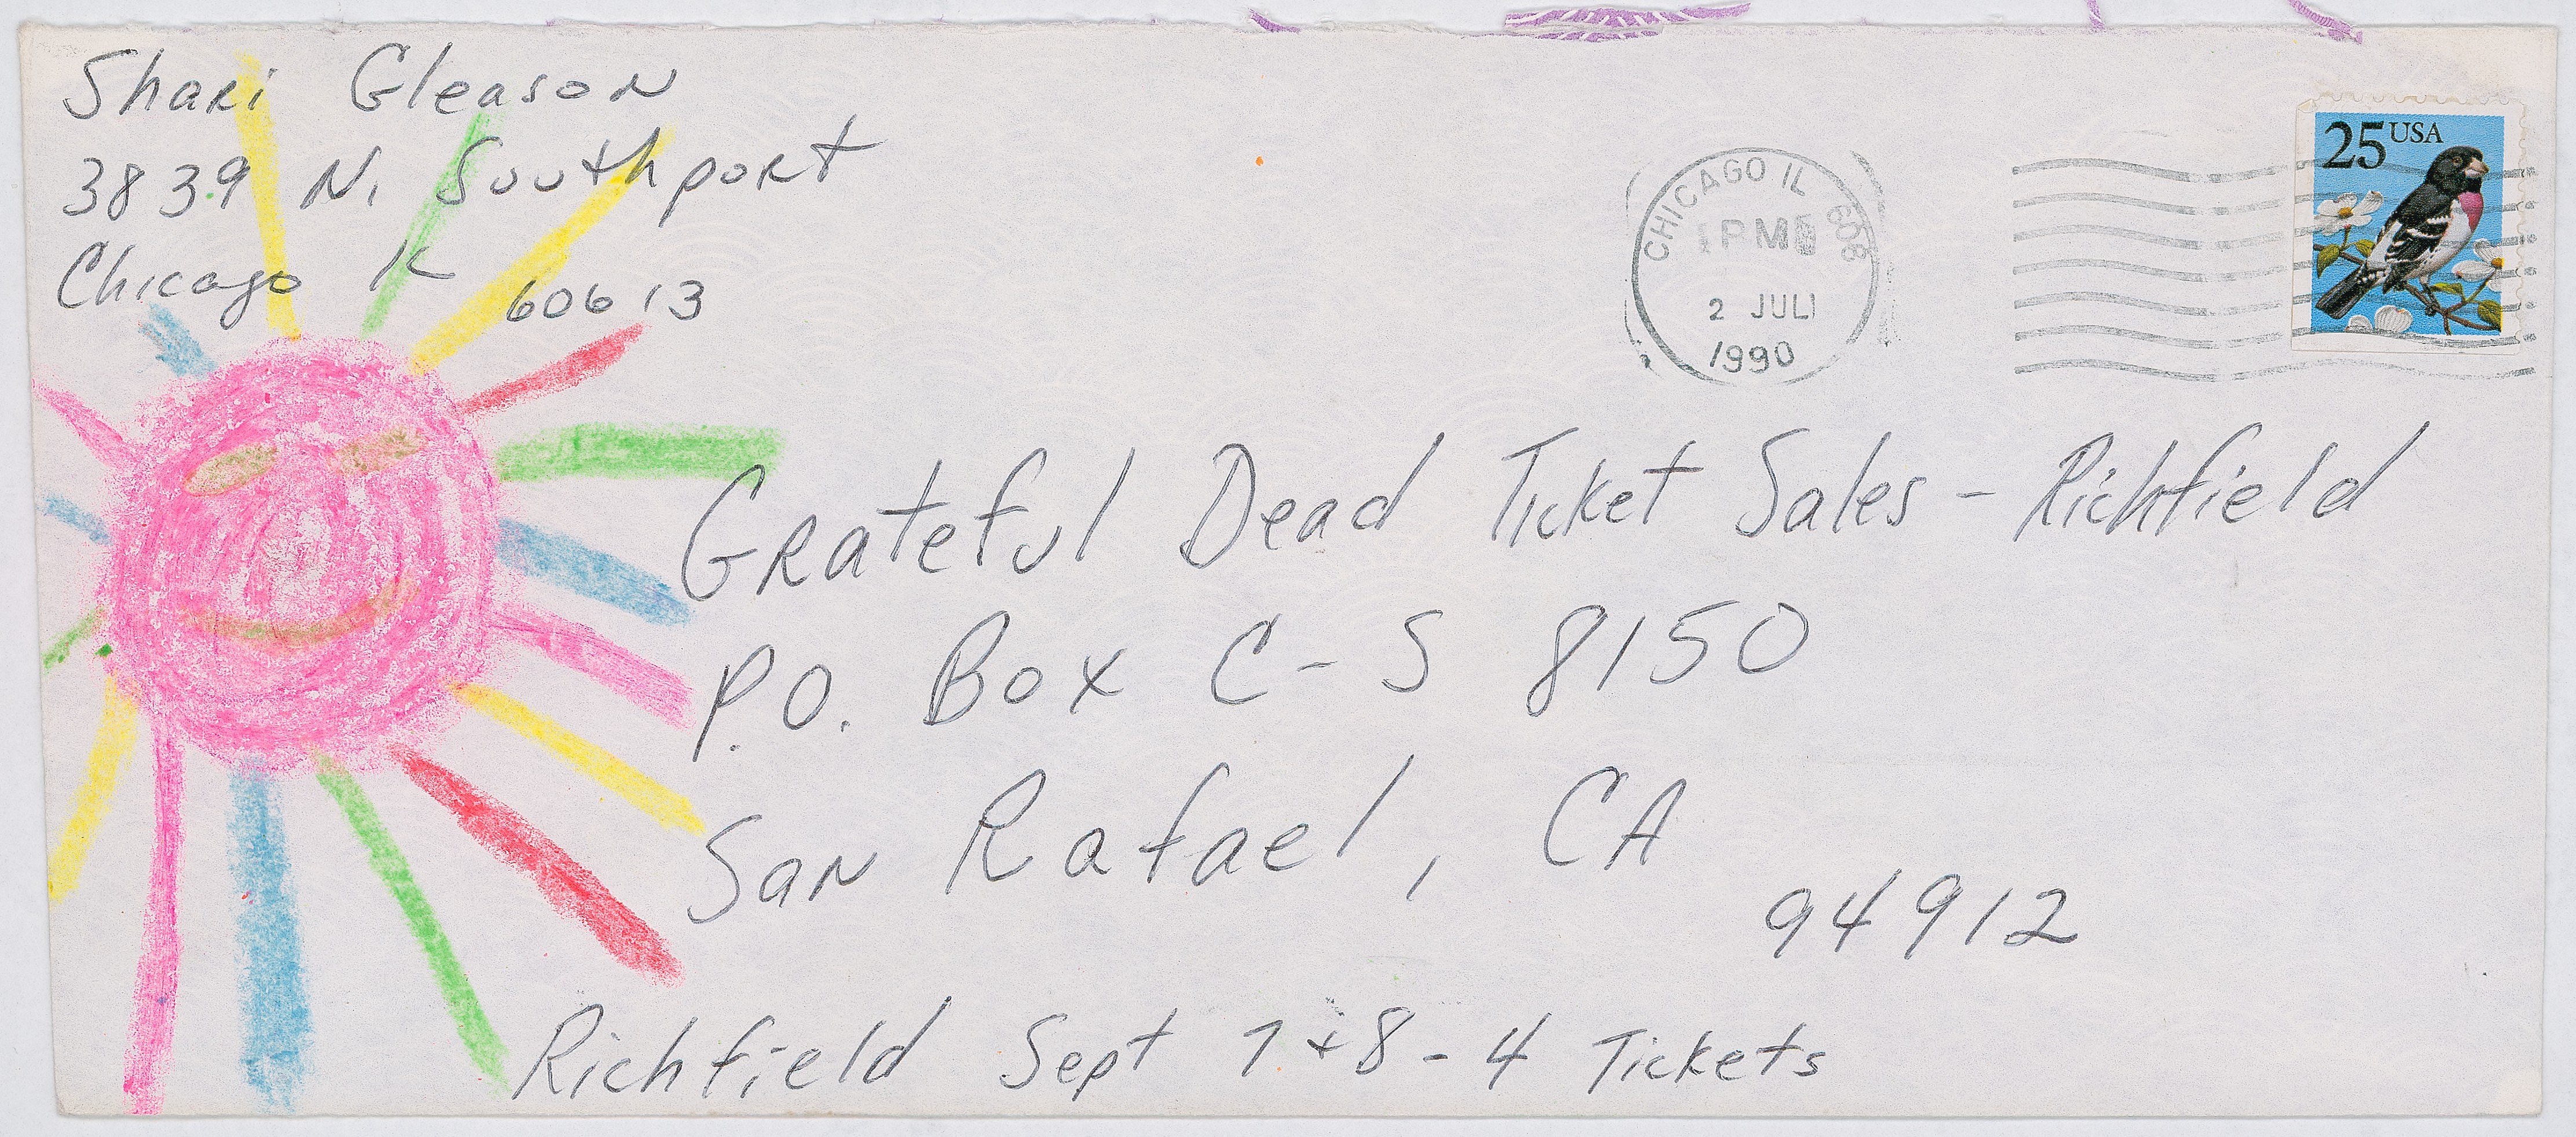 Shari Gleason
3839 N. Southport
Chicago IL 60613
CHICAGO IL 606
PM
2 JUL
1990
25 USA
Grateful Dead Ticket Sales - Richfield
P.O. Box C-S 8150
San Rafael, CA
94912
Richfield Sept 7 + 8 - 4 Tickets